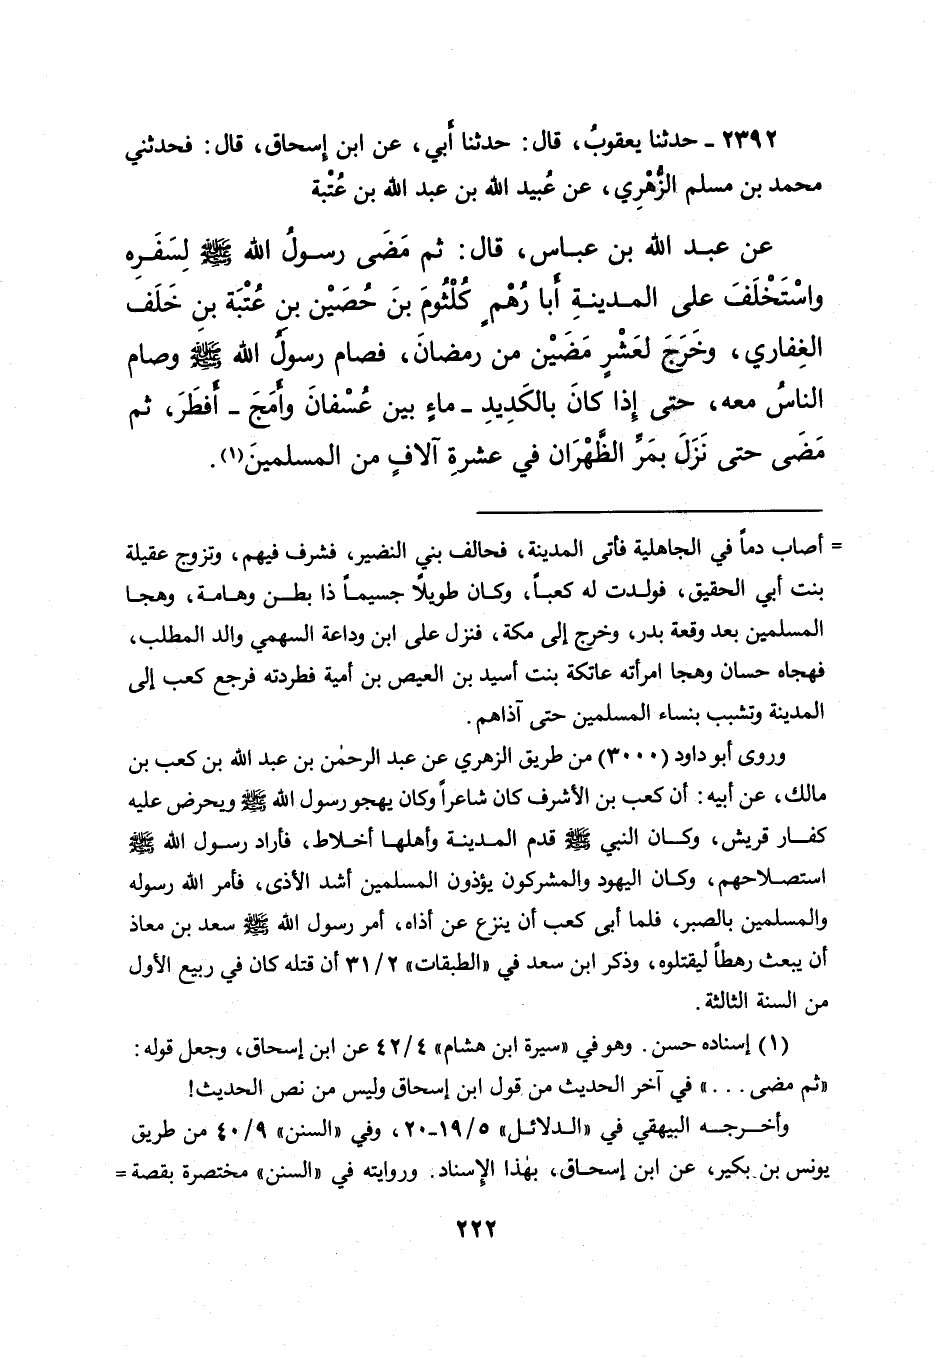 ٢٣٩٢ ـ حدثنا يعقوبُ، قال: حدثنا أَبي، عن ابن إِسحاق، قال: فحدثني
محمد بن مسلم الزُّهْرِي، عن عُبيد الله بن عبد الله بن عُتْبة
عن عبد الله بن عباس، قال: ثم مَضَى رسولُ الله ﷺ لِسَفَرِه
واسْتَخْلَفَ على المدينةِ أَبا رُهْمٍ كُلْثُومَ بنَ حُصَيْن بنِ عُتْبَة بنِ خَلَف
الغِفاري، وخَرَجَ لعَشْرٍ مَضَيْن من رمضانَ، فصام رسولُ الله ﷺ وصام
الناسُ معه، حتى إِذا كانَ بالكَدِيدِ ـ ماءٍ بين عُسْفانَ وأَمَجَ ـ أَفطَرَ، ثم
مَضَى حتى نَزَلَ بمَرِّ الظَّهْرَان في عشرةِ آلافٍ من المسلمينَ(١).
= أصاب دماً في الجاهلية فأتى المدينة، فحالف بني النضير، فشرف فيهم، وتزوج عقيلة
بنت أبي الحقيق، فولدت له كعباً، وكان طويلاً جسيماً ذا بطن وهامة، وهجا
المسلمين بعد وقعة بدر، وخرج إلى مكة، فنزل على ابن وداعة السهمي والد المطلب،
فهجاه حسان وهجا امرأته عاتكة بنت أسيد بن العيص بن أمية فطردته فرجع كعب إلى
المدينة وتشبب بنساء المسلمين حتى آذاهم.
وروى أبو داود (٣٠٠٠) من طريق الزهري عن عبد الرحمٰن بن عبد الله بن كعب بن
مالك، عن أبيه: أن كعب بن الأشرف كان شاعراً وكان يهجو رسول الله ﷺ ويحرض عليه
كفار قريش، وكان النبي ﷺ قدم المدينة وأهلها أخلاط، فأراد رسول الله ﷺ
استصلاحهم، وكان اليهود والمشركون يؤذون المسلمين أشد الأذى، فأمر الله رسوله
والمسلمين بالصبر، فلما أبى كعب أن ينزع عن أذاه، أمر رسول الله ﷺ سعد بن معاذ
أن يبعث رهطاً ليقتلوه، وذكر ابن سعد في «الطبقات» ٣١/٢ أن قتله كان في ربيع الأول
من السنة الثالثة.
(١) إسناده حسن. وهو في «سيرة ابن هشام» ٤٢/٤ عن ابن إسحاق، وجعل قوله:
«ثم مضى...» في آخر الحديث من قول ابن إسحاق وليس من نص الحديث!
وأخرجه البيهقي في «الدلائل» ١٩/٥-٢٠، وفي «السنن» ٤٠/٩ من طريق
يونس بن بكير، عن ابن إسحاق، بهٰذا الإسناد. وروايته في «السنن» مختصرة بقصة =
٢٢٢